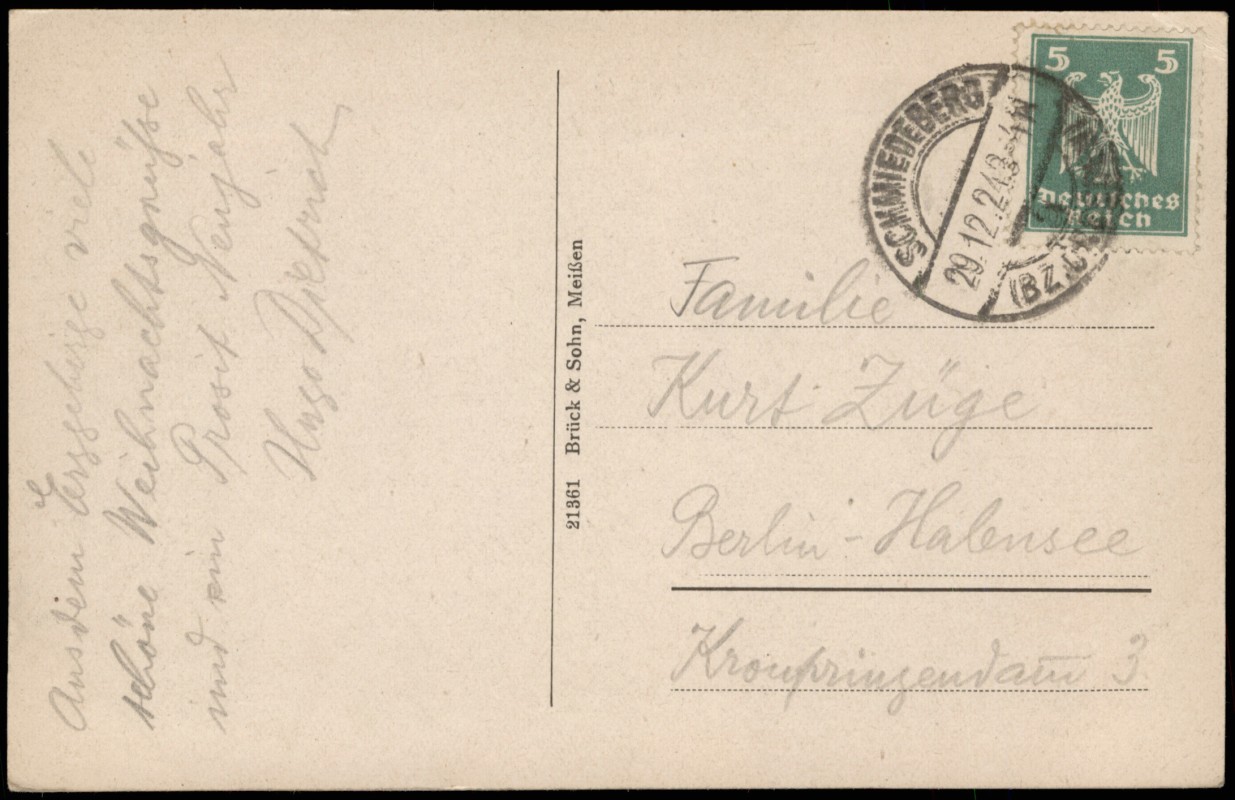 Aus dem Erzgebirge viele
schöne Weihnachtsgrüsse
und ein Prosit Neujahr
Hugo
21361 Brück & Sohn, Meißen
5 5
Deutsches
Reich
SCHMIEDEBERG
29.12.24.3-4N
(BZ.
Familie
Kurt Züge
Berlin-Halensee
Kronprinzendam̅ 3.